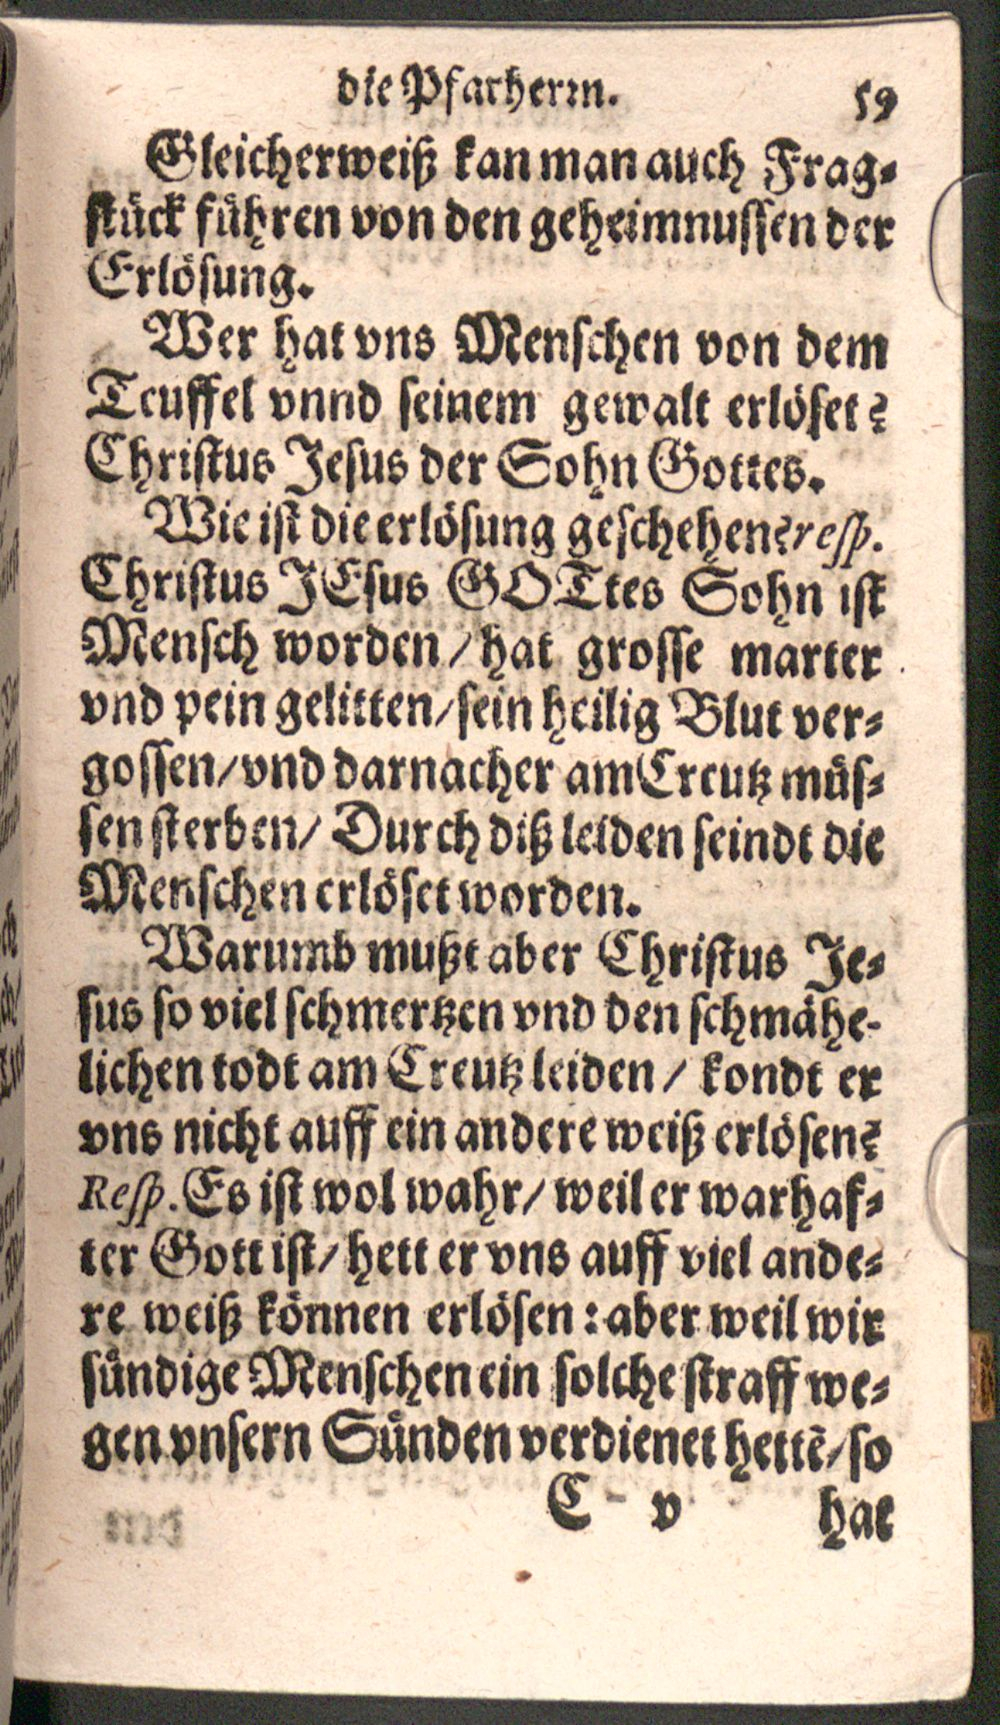 die Pfarherm. 59
Gleicherweiß kan man auch Frag-
stück führen von den geheimnussen der
Erlösung.
Wer hat vns Menschen von dem
Teuffel vnnd seinem gewalt erlöset?
Christus Jesus der Sohn Gottes.
Wie ist die erlösung geschehen? resp.
Christus JEsus GOTtes Sohn ist
Mensch worden / hat grosse marter
vnd pein gelitten / sein heilig Blut ver-
gossen / vnd darnacher am Creutz müs-
sen sterben / Durch diß leiden seindt die
Menschen erlöset worden.
Warumb mußt aber Christus Je-
sus so viel schmertzen vnd den schmähe-
lichen todt am Creutz leiden / kondt er
vns nicht auff ein andere weiß erlösen?
Resp. Es ist wol wahr / weil er warhaf-
ter Gott ist / hett er vns auff viel ande-
re weiß können erlösen : aber weil wir
sündige Menschen ein solche straff we-
gen vnsern Sünden verdienet hettē / so
C v hat